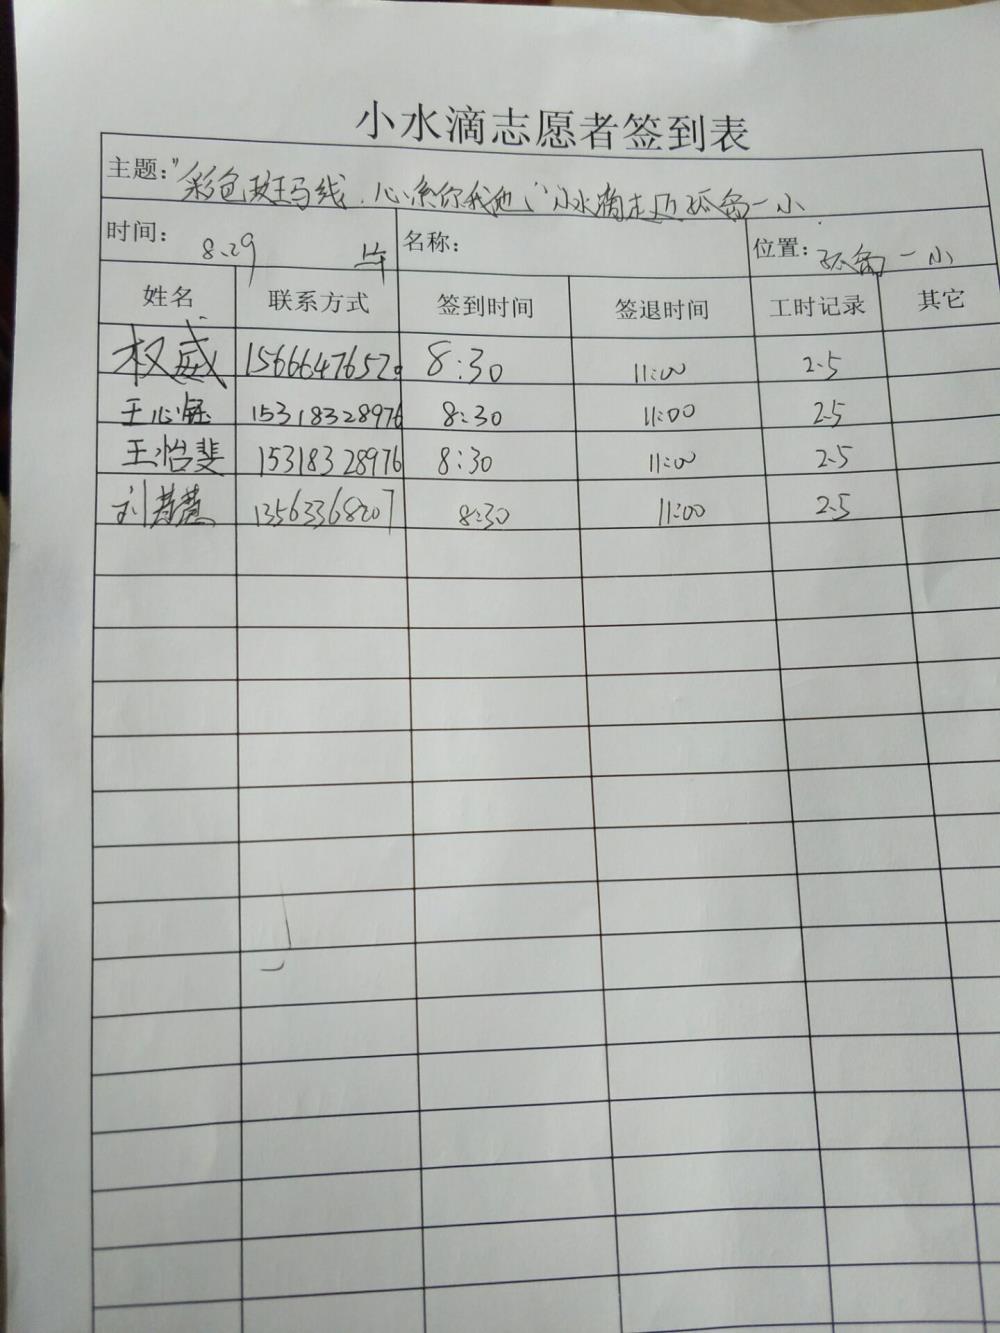 小水滴志愿者签到表
主题："彩色斑马线、心系你我他"小水滴走近孤岛一小
时间： 8.29 上午 名称： 位置：孤岛一小
姓名 联系方式 签到时间 签退时间 工时记录 其它
权威 8:30 11:00 2.5
王心钰 15318328976 8:30 11:00 2.5
王怡斐 15318328976 8:30 11:00 2.5
刘 13563368207 8:30 11:00 2.5